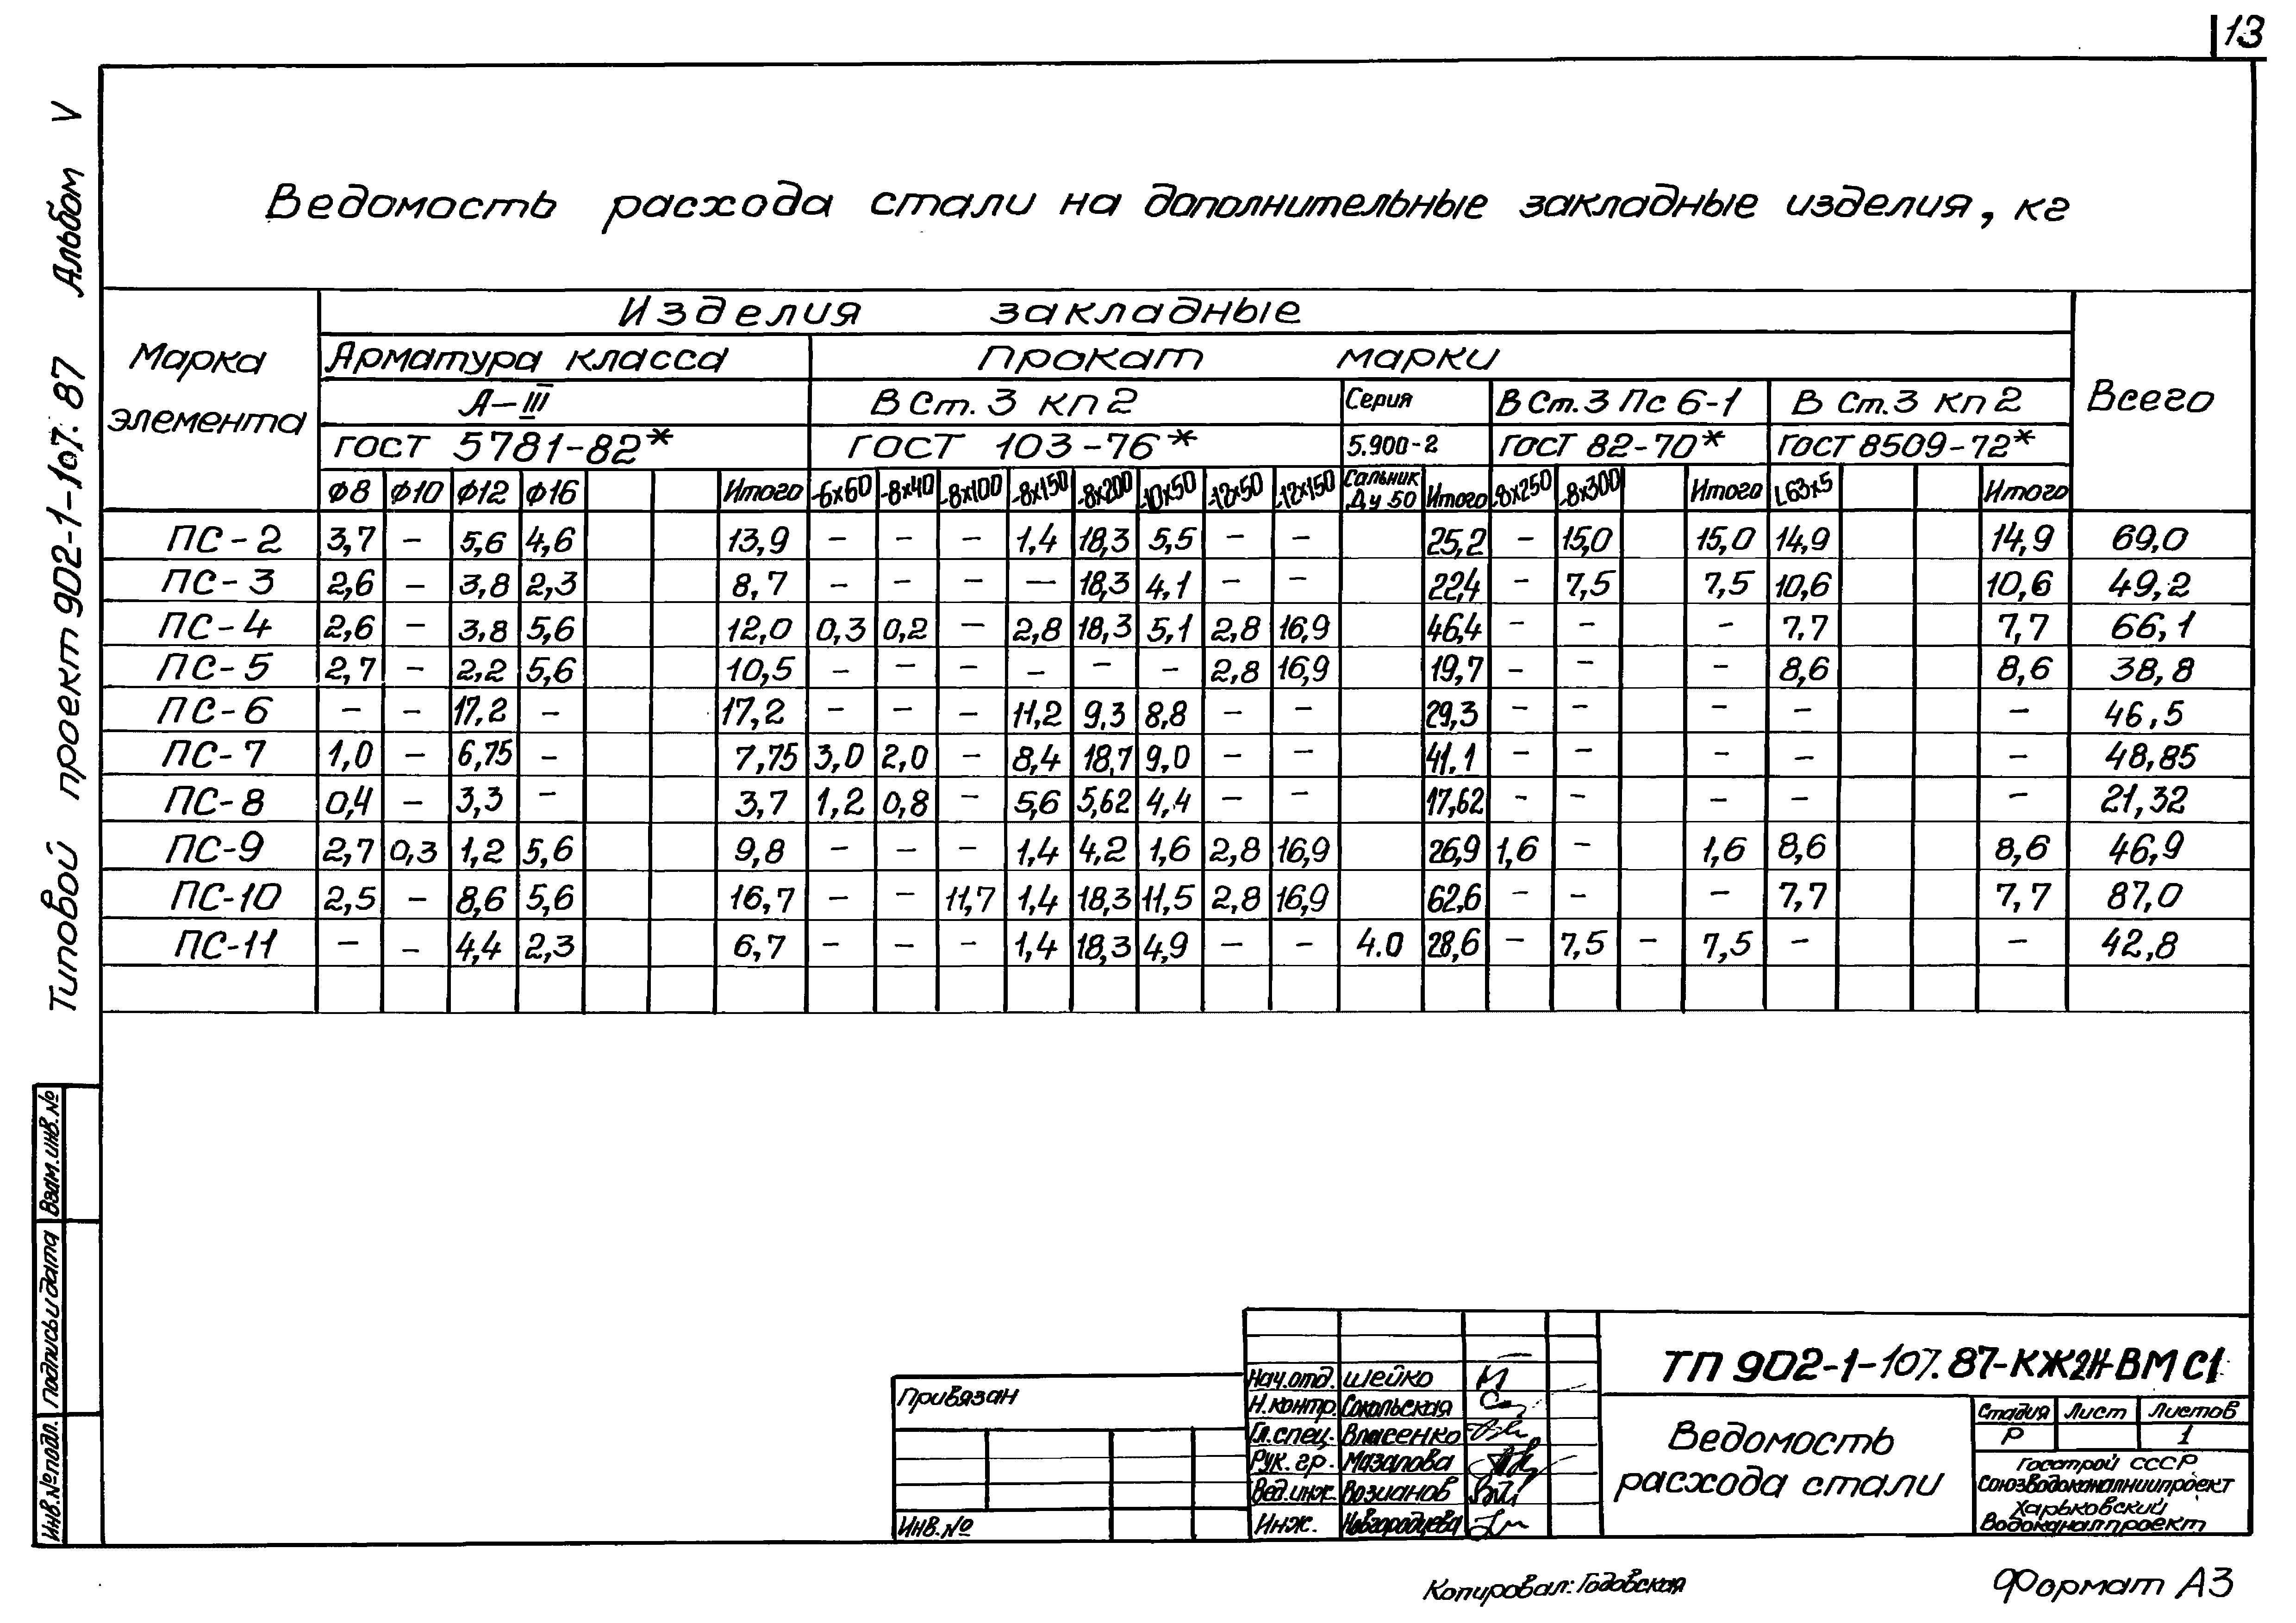 13
Типовой проект 902-1-107.87 Альбом V
Ведомость расхода стали на дополнительные закладные изделия, кг
Марка элемента
Изделия закладные
Всего
Арматура класса
Прокат марки
А-III
В Ст.3 кп 2
Серия
В Ст.3 Пс 6-1
В Ст.3 кп 2
ГОСТ 5781-82*
ГОСТ 103-76*
5.900-2
ГОСТ 82-70*
ГОСТ 8509-72*
Ф8 Ф10 Ф12 Ф16 Итого -6х60 -8х40 -8х100 -8х150 -8х200 -10х50 -12х50 -12х150 Сальник Ду 50 Итого -8х250 -8х300 Итого L63х5 Итого
ПС-2 3,7 – 5,6 4,6 13,9 – – – 1,4 18,3 5,5 – – 25,2 – 15,0 15,0 14,9 14,9 69,0
ПС-3 2,6 – 3,8 2,3 8,7 – – – – 18,3 4,1 – – 22,4 – 7,5 7,5 10,6 10,6 49,2
ПС-4 2,6 – 3,8 5,6 12,0 0,3 0,2 – 2,8 18,3 5,1 2,8 16,9 46,4 – – – 7,7 7,7 66,1
ПС-5 2,7 – 2,2 5,6 10,5 – – – – – – 2,8 16,9 19,7 – – – 8,6 8,6 38,8
ПС-6 – – 17,2 – 17,2 – – – 11,2 9,3 8,8 – – 29,3 – – – – – 46,5
ПС-7 1,0 – 6,75 – 7,75 3,0 2,0 – 8,4 18,7 9,0 – – 41,1 – – – – – 48,85
ПС-8 0,4 – 3,3 – 3,7 1,2 0,8 – 5,6 5,62 4,4 – – 17,62 – – – – – 21,32
ПС-9 2,7 0,3 1,2 5,6 9,8 – – – 1,4 4,2 1,6 2,8 16,9 26,9 1,6 – 1,6 8,6 8,6 46,9
ПС-10 2,5 – 8,6 5,6 16,7 – – 11,7 1,4 18,3 11,5 2,8 16,9 62,6 – – – 7,7 7,7 87,0
ПС-11 – – 4,4 2,3 6,7 – – – 1,4 18,3 4,9 – – 4.0 28,6 – 7,5 – 7,5 – – 42,8
Взам.инв.№
Подпись и дата
Инв.№ подл.
Привязан
Инв.№
Нач.отд. Шейко
Н.контр. Сокольская
Гл.спец. Власенко
Рук. гр. Мазалова
Вед.инж. Возианов
Инж. Новгородцева
ТП 902-1-107.87-КЖ2И-ВМ С1
Ведомость расхода стали
Стадия Лист Листов
Р 1
Госстрой СССР
Союзводоканалниипроект
Харьковский
Водоканалпроект
Копировал: Годовская
Формат А3